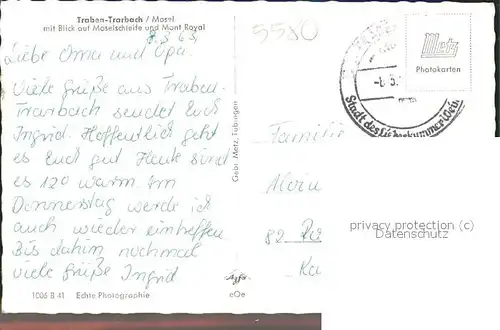 Traben-Trarbach / Mosel
mit Blick auf Moselschleife und Mont Royal
5580
8.5.63.
Liebe Oma und Opa.
Viele Grüße aus Traben-
Trarbach sendet Euch
Ingrid. Hoffentlich geht
es Euch gut Heute sind
es 12° warm. Am
Donnerstag werde ich
auch wieder eintreffen.
Bis dahin nochmal
viele Grüße Ingrid
1006 B 41 Echte Photographie
Gebr. Metz, Tübingen
eQe
Metz
Photokarten
-8.5.
Stadt des
Familie
Alvin
82
Ka
privacy protection (c)
Datenschutz